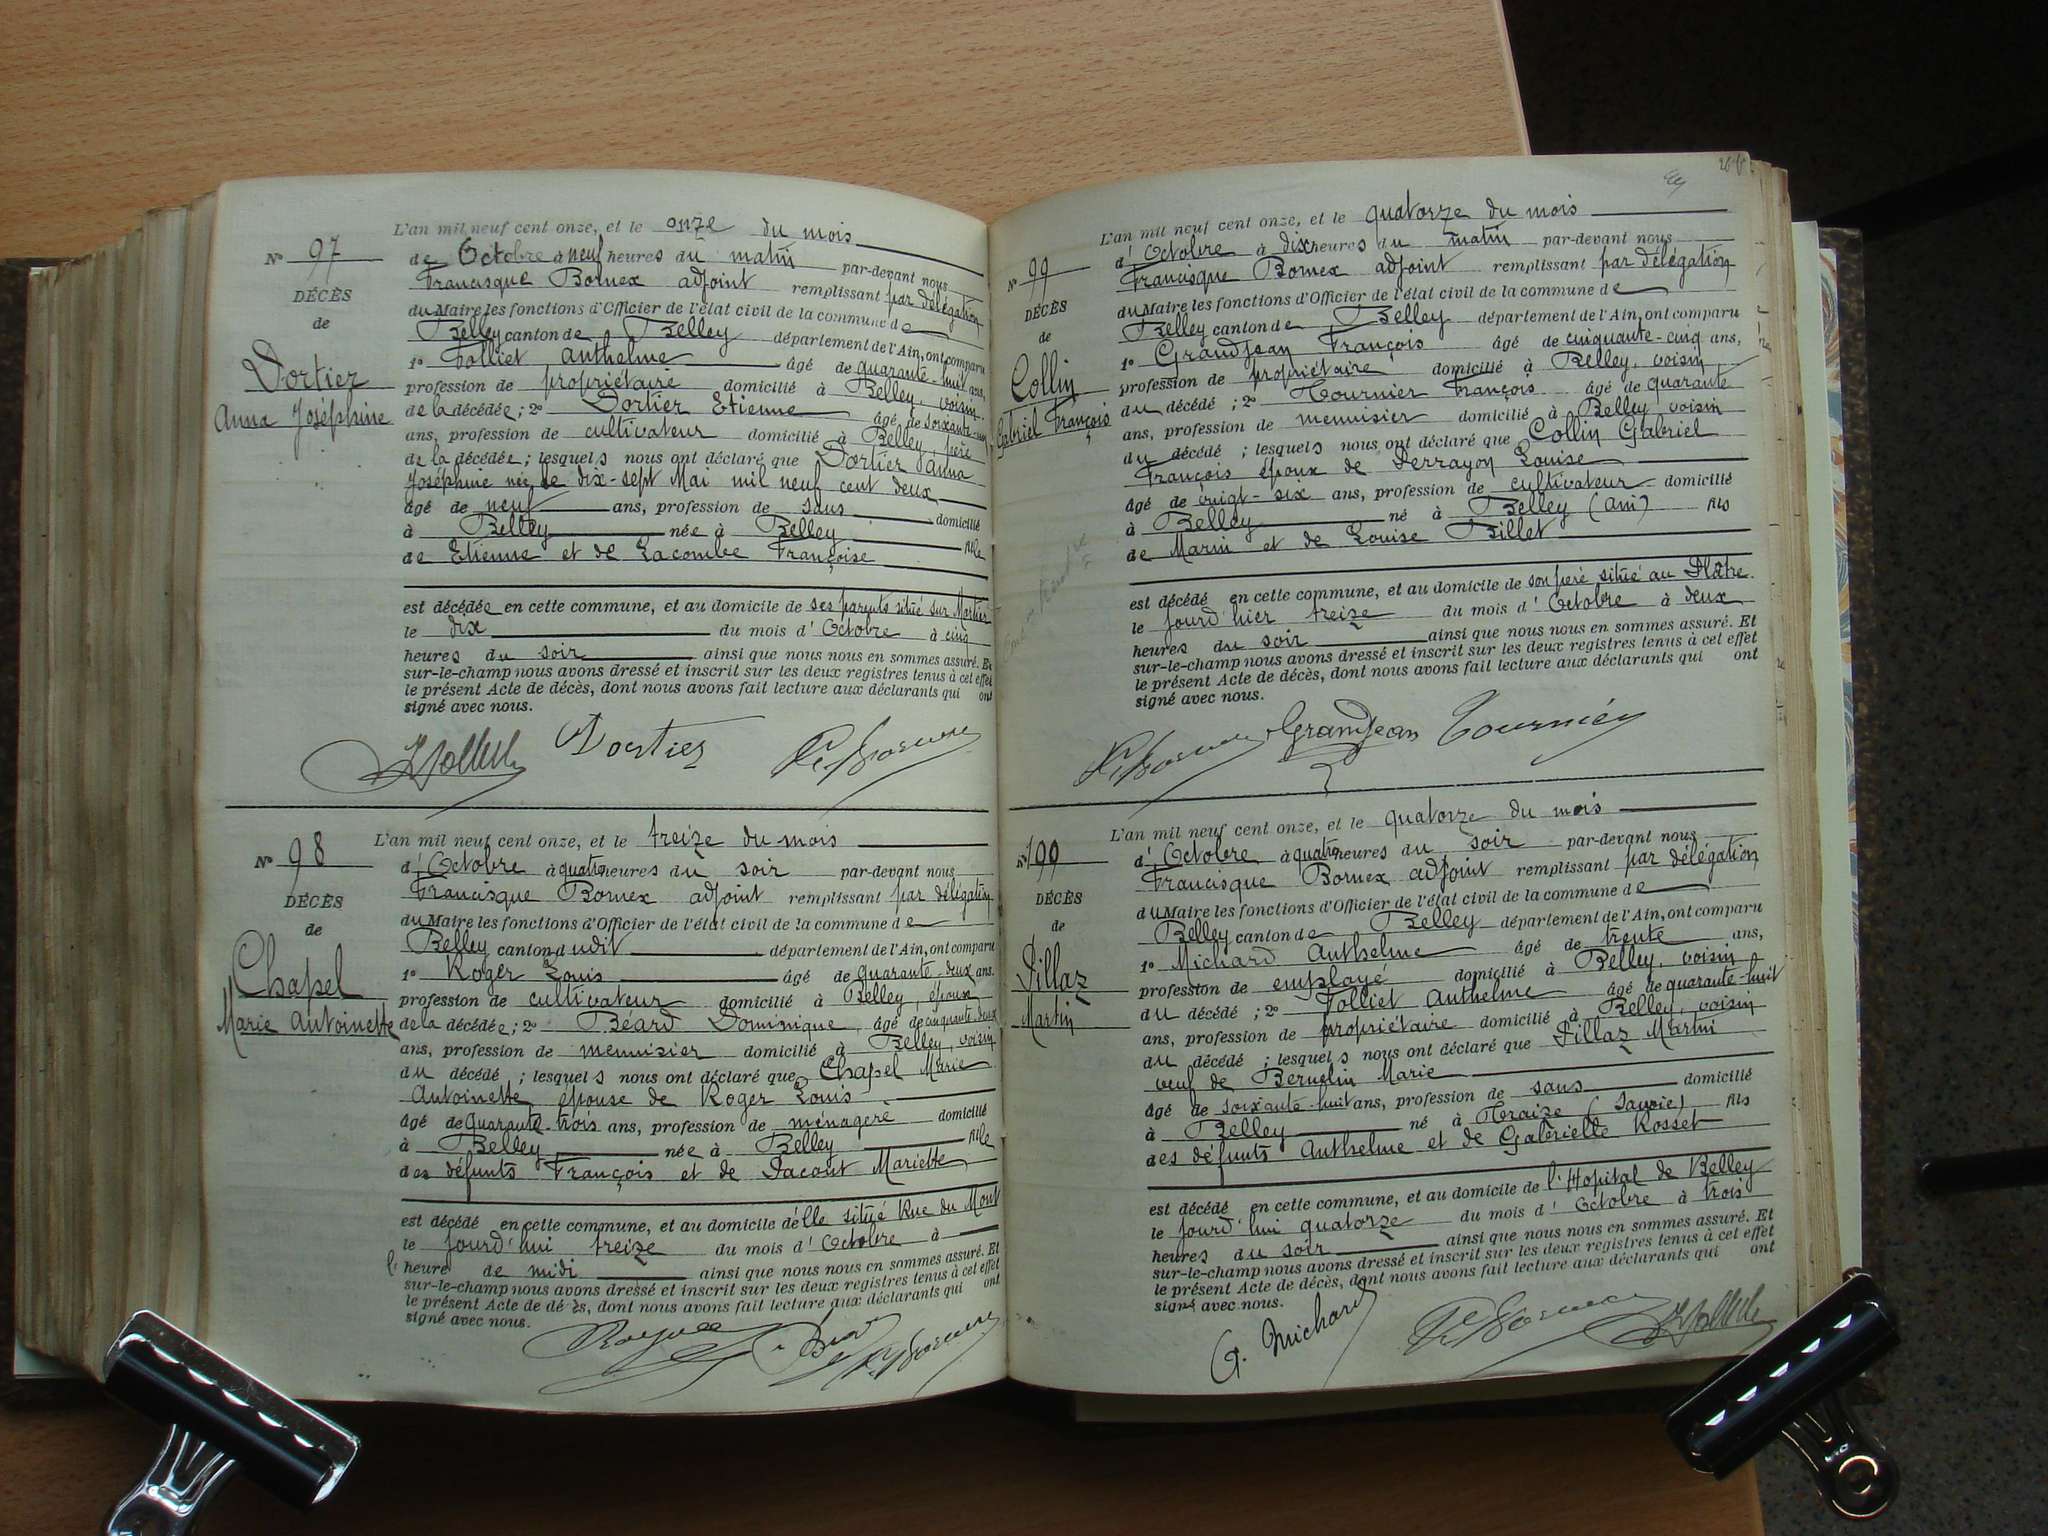 N° 97
DÉCÈS
de
Dortier
Anna Joséphine
L'an mil neuf cent onze, et le onze du mois
de Octobre à neuf heures du matin par-devant nous
Francisque Bornex adjoint remplissant par délégation
du Maire les fonctions d'Officier de l'état civil de la commune de
Belley canton de Belley département de l'Ain, ont comparu
1° Folliet Anthelme âgé de quarante-huit ans,
profession de propriétaire domicilié à Belley, voisin
de la décédée; 2° Dortier Etienne âgé de soixante-un
ans, profession de cultivateur domicilié à Belley, père
de la décédée; lesquels nous ont déclaré que Dortier Anna
Joséphine née le dix-sept Mai mil neuf cent deux
âgé de neuf ans, profession de sans domicilié
à Belley née à Belley fille
de Etienne et de Lacombe Françoise
est décédée en cette commune, et au domicile de ses parents situé sur Martier
le dix du mois d'Octobre à cinq
heures du soir ainsi que nous nous en sommes assuré. Et
sur-le-champ nous avons dressé et inscrit sur les deux registres tenus à cet effet
le présent Acte de décès, dont nous avons fait lecture aux déclarants qui ont
signé avec nous.
Dortier
N° 98
DÉCÈS
de
Chapel
Marie Antoinette
L'an mil neuf cent onze, et le treize du mois
d'Octobre à quatre heures du soir par-devant nous
Francisque Bornex adjoint remplissant par délégation
du Maire les fonctions d'Officier de l'état civil de la commune de
Belley canton dudit département de l'Ain, ont comparu
1° Roger Louis âgé de quarante-deux ans,
profession de cultivateur domicilié à Belley, époux
de la décédée; 2° Béard Dominique, âgé de cinquante-deux
ans, profession de menuisier domicilié à Belley, voisin
du décédé; lesquels nous ont déclaré que Chapel Marie
Antoinette épouse de Roger Louis
âgé de quarante-trois ans, profession de ménagère domicilié
à Belley née à Belley fille
des défunts François et de Jacout Mariette
est décédé en cette commune, et au domicile d'elle situé Rue du Mont
le jourd'hui treize du mois d'Octobre à
l'heure de midi ainsi que nous nous en sommes assuré. Et
sur-le-champ nous avons dressé et inscrit sur les deux registres tenus à cet effet
le présent Acte de décès, dont nous avons fait lecture aux déclarants qui ont
signé avec nous.
N° 99
DÉCÈS
de
Collin
Gabriel François
L'an mil neuf cent onze, et le quatorze du mois
d'Octobre à dix heures du matin par-devant nous
Francisque Bornex adjoint remplissant par délégation
du Maire les fonctions d'Officier de l'état civil de la commune de
Belley canton de Belley département de l'Ain, ont comparu
1° Grandjean François âgé de cinquante-cinq ans,
profession de propriétaire domicilié à Belley, voisin
du décédé; 2° Tournier François âgé de quarante
ans, profession de menuisier domicilié à Belley voisin
du décédé; lesquels nous ont déclaré que Collin Gabriel
François époux de Perrayon Louise
âgé de vingt-six ans, profession de cultivateur domicilié
à Belley né à Belley (Ain) fils
de Marin et de Louise Billet
est décédé en cette commune, et au domicile de son père situé au Plâtre
le jourd'hier treize du mois d'Octobre à deux
heures du soir ainsi que nous nous en sommes assuré. Et
sur-le-champ nous avons dressé et inscrit sur les deux registres tenus à cet effet
le présent Acte de décès, dont nous avons fait lecture aux déclarants qui ont
signé avec nous.
Grandjean Tournier
N° 100
DÉCÈS
de
Pillaz
Martin
L'an mil neuf cent onze, et le quatorze du mois
d'Octobre à quatre heures du soir par-devant nous
Francisque Bornex adjoint remplissant par délégation
du Maire les fonctions d'Officier de l'état civil de la commune de
Belley canton de Belley département de l'Ain, ont comparu
1° Michard Anthelme âgé de trente ans,
profession de employé domicilié à Belley, voisin
du décédé; 2° Folliet Anthelme âgé de quarante-huit
ans, profession de propriétaire domicilié à Belley, voisin
du décédé; lesquels nous ont déclaré que Pillaz Martin
veuf de Bernelin Marie
âgé de soixante-huit ans, profession de sans domicilié
à Belley né à Traize (Savoie) fils
des défunts Anthelme et de Gabrielle Rosset
est décédé en cette commune, et au domicile de l'Hopital de Belley
le jourd'hui quatorze du mois d'Octobre à trois
heures du soir ainsi que nous nous en sommes assuré. Et
sur-le-champ nous avons dressé et inscrit sur les deux registres tenus à cet effet
le présent Acte de décès, dont nous avons fait lecture aux déclarants qui ont
signé avec nous.
G. Michard